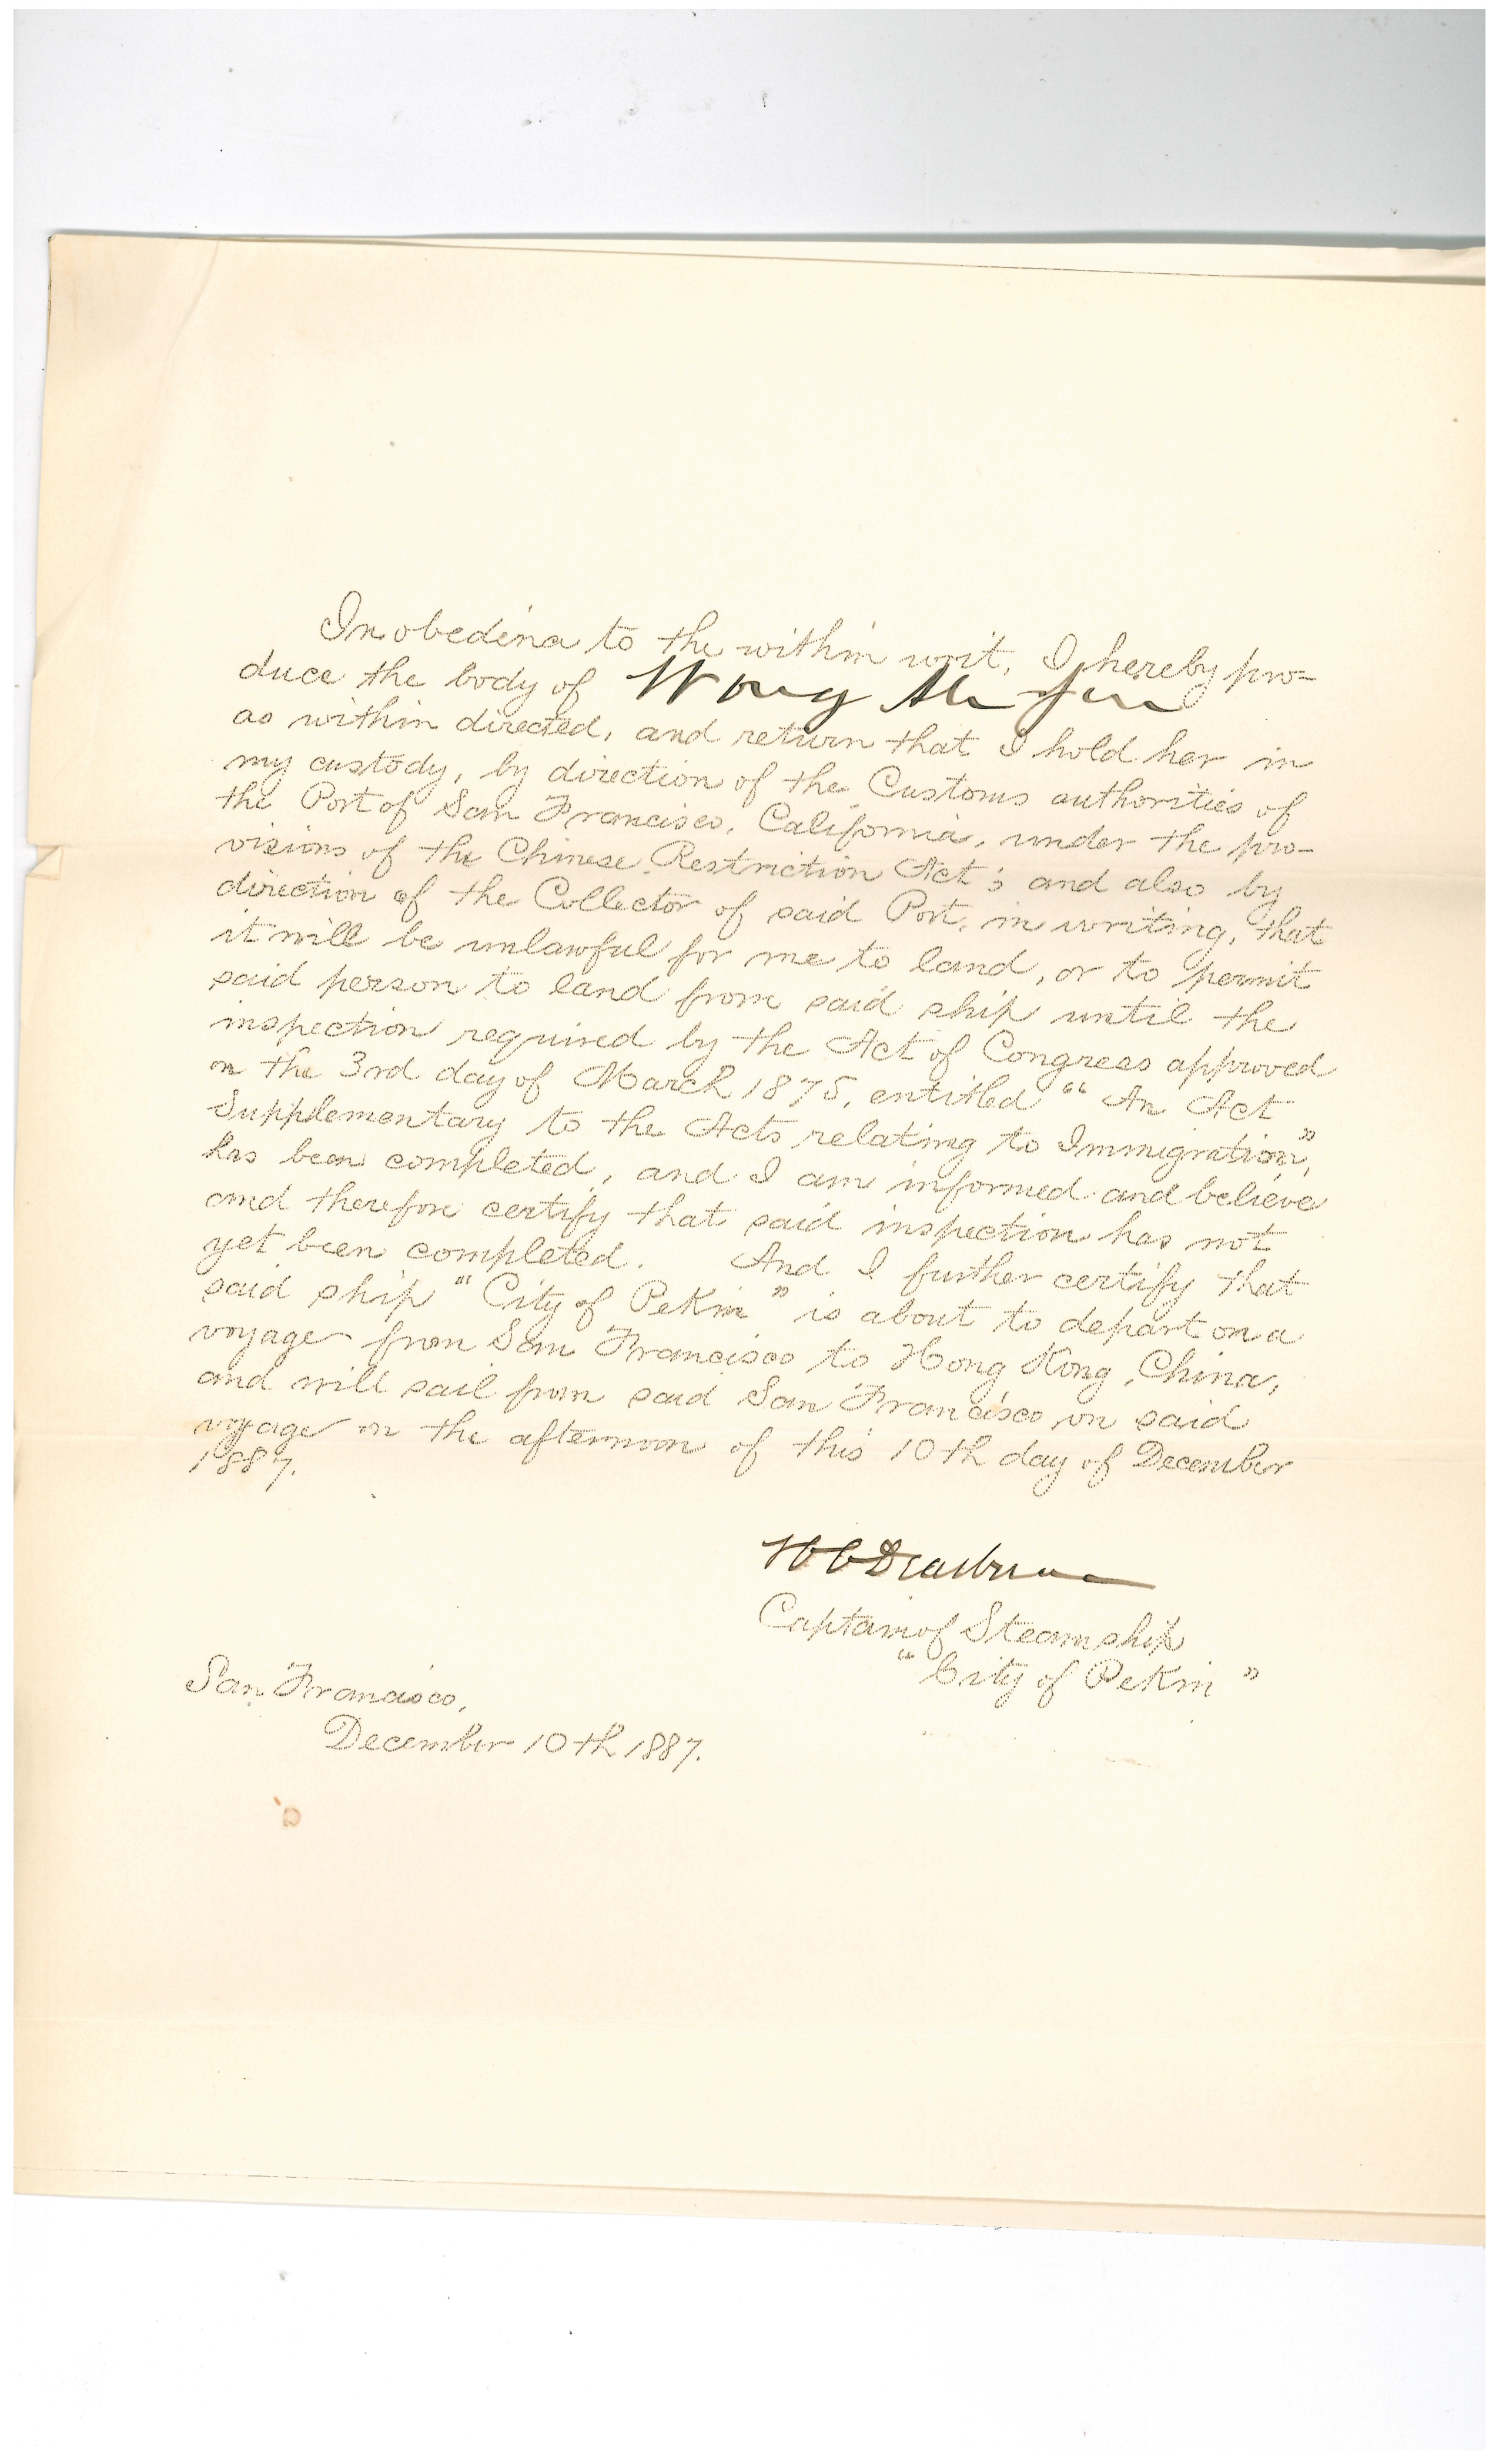 In obedina to the within writ, I hereby pro-
duce the body of Wong Ah
as within directed, and return that I hold her in
my custody, by direction of the Customs authorities of
the Port of San Francisco, California, under the pro-
visions of the Chinese Restriction Act; and also by
direction of the Collector of said Port, in writing, that
it will be unlawful for me to land, or to permit
said person to land from said ship until the
inspection required by the Act of Congress approved
on the 3rd day of March 1875, entitled "An Act
Supplementary to the Acts relating to Immigration",
has been completed, and I am informed and believe
and therefore certify that said inspection has not
yet been completed. And I further certify that
said ship "City of Pekin" is about to depart on a
voyage from San Francisco to Hong Kong, China,
and will sail from said San Francisco on said
voyage on the afternoon of this 10th day of December
1887.
Captain of Steamship
"City of Pekin"
San Francisco,
December 10th 1887.